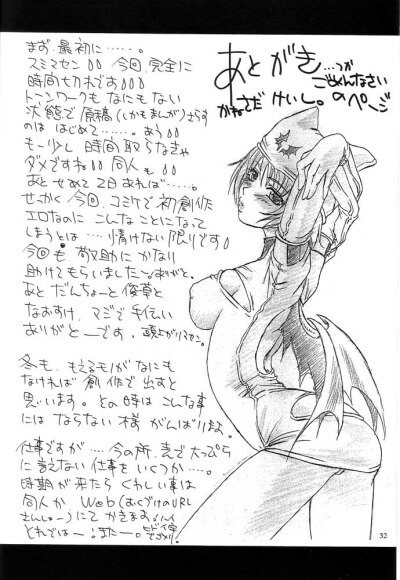 あとがき…つか
ごめんなさい
かねさだ けいし。のページ
まず、最初に……。
スミマセン 今回、完全に
時間切れです
トーンワークもなにもない
状態で原稿(しかもまんが)さらす
のははじめて……。あう
もー少し時間取らなきゃ
ダメですね 同人も
あとせめて2日あれば……。
せっかく今回、コミケで初創作
エロなのに こんなことになって
しまうとは…情けない限りです
今回も 敬助にかなり
助けてもらいました〜ありがと。
あと だんちょーと 俊草と
なおすけ、マジで手伝い
ありがとーです、頭上がりマセン。
冬も、もえるモノがなにも
なければ創作で出すと
思います。その時はこんな事
にはならない様がんばりまよ。
仕事ですが…、今の所、表で大っぴら
に言えない仕事をいくつか…。
時期が来たらくわしい事は
同人か Web(おくづけのURL
さんしょー)にてかきます。
それではー:また―。
32